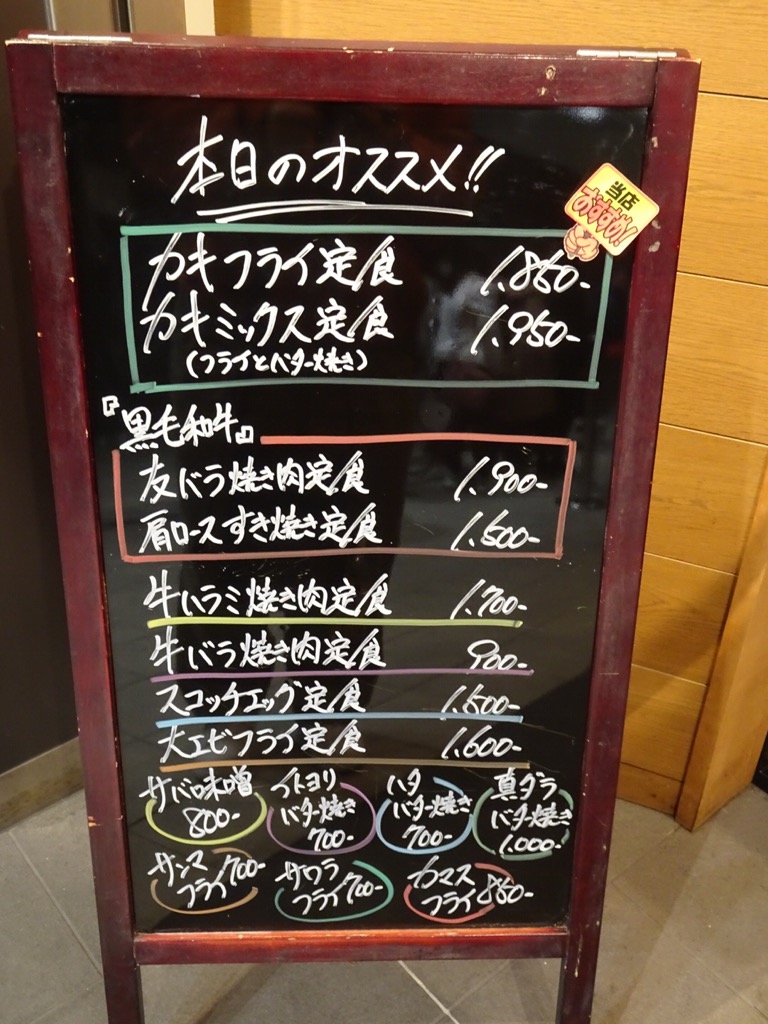 本日のオススメ!!
当店
おすすめ!
カキフライ定食 1.850-
カキミックス定食 1.950-
(フライとバター焼き)
『黒毛和牛』
友バラ焼き肉定食 1.900-
肩ロースすき焼き定食 1.500-
牛ハラミ焼き肉定食 1.700-
牛バラ焼き肉定食 900-
スコッチエッグ定食 1.500-
大エビフライ定食 1.600-
サバ味噌
800-
イトヨリ
バター焼き
700-
ハタ
バター焼き
700-
真ダラ
バター焼き
1.000-
サンマ
フライ 700-
サワラ
フライ 700-
カマス
フライ 850-